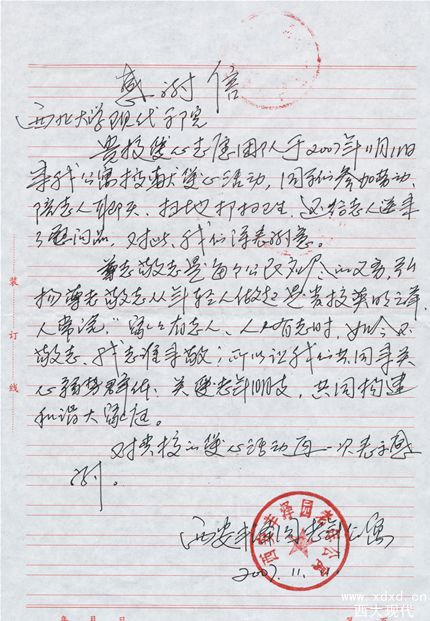 感谢信
西北大学现代学院
贵校爱心志愿团队于2007年11月11日
来我公寓投献爱心活动,同学们参加劳动、
陪老人聊天、扫地打扫卫生,还给老人送来
了慰问品,对此,我们深表谢意。
尊老敬老是每个公民应尽的义务,弘
扬尊老敬老从年轻人做起是贵校英明之举,
人常说,"家家有老人、人人有老时,如今不
敬老,我老谁来敬",所以让我们共同来关
心弱势群体,关爱老年朋友,共同构建
和谐大家庭。
对贵校的爱心活动再一次表示感
谢。
西安丰泽园老年公寓
2007.11.11
装订线
年 月 日
www.xdxd.cn
西大现代